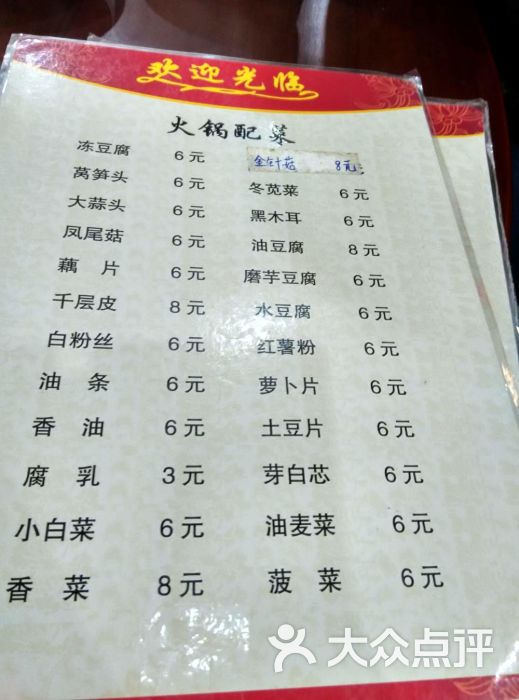 欢迎光临
火锅配菜
冻豆腐 6元 金针菇 8元
莴笋头 6元 冬苋菜 6元
大蒜头 6元 黑木耳 6元
凤尾菇 6元 油豆腐 8元
藕片 6元 磨芋豆腐 6元
千层皮 8元 水豆腐 6元
白粉丝 6元 红薯粉 6元
油条 6元 萝卜片 6元
香油 6元 土豆片 6元
腐乳 3元 芽白芯 6元
小白菜 6元 油麦菜 6元
香菜 8元 菠菜 6元
大众点评